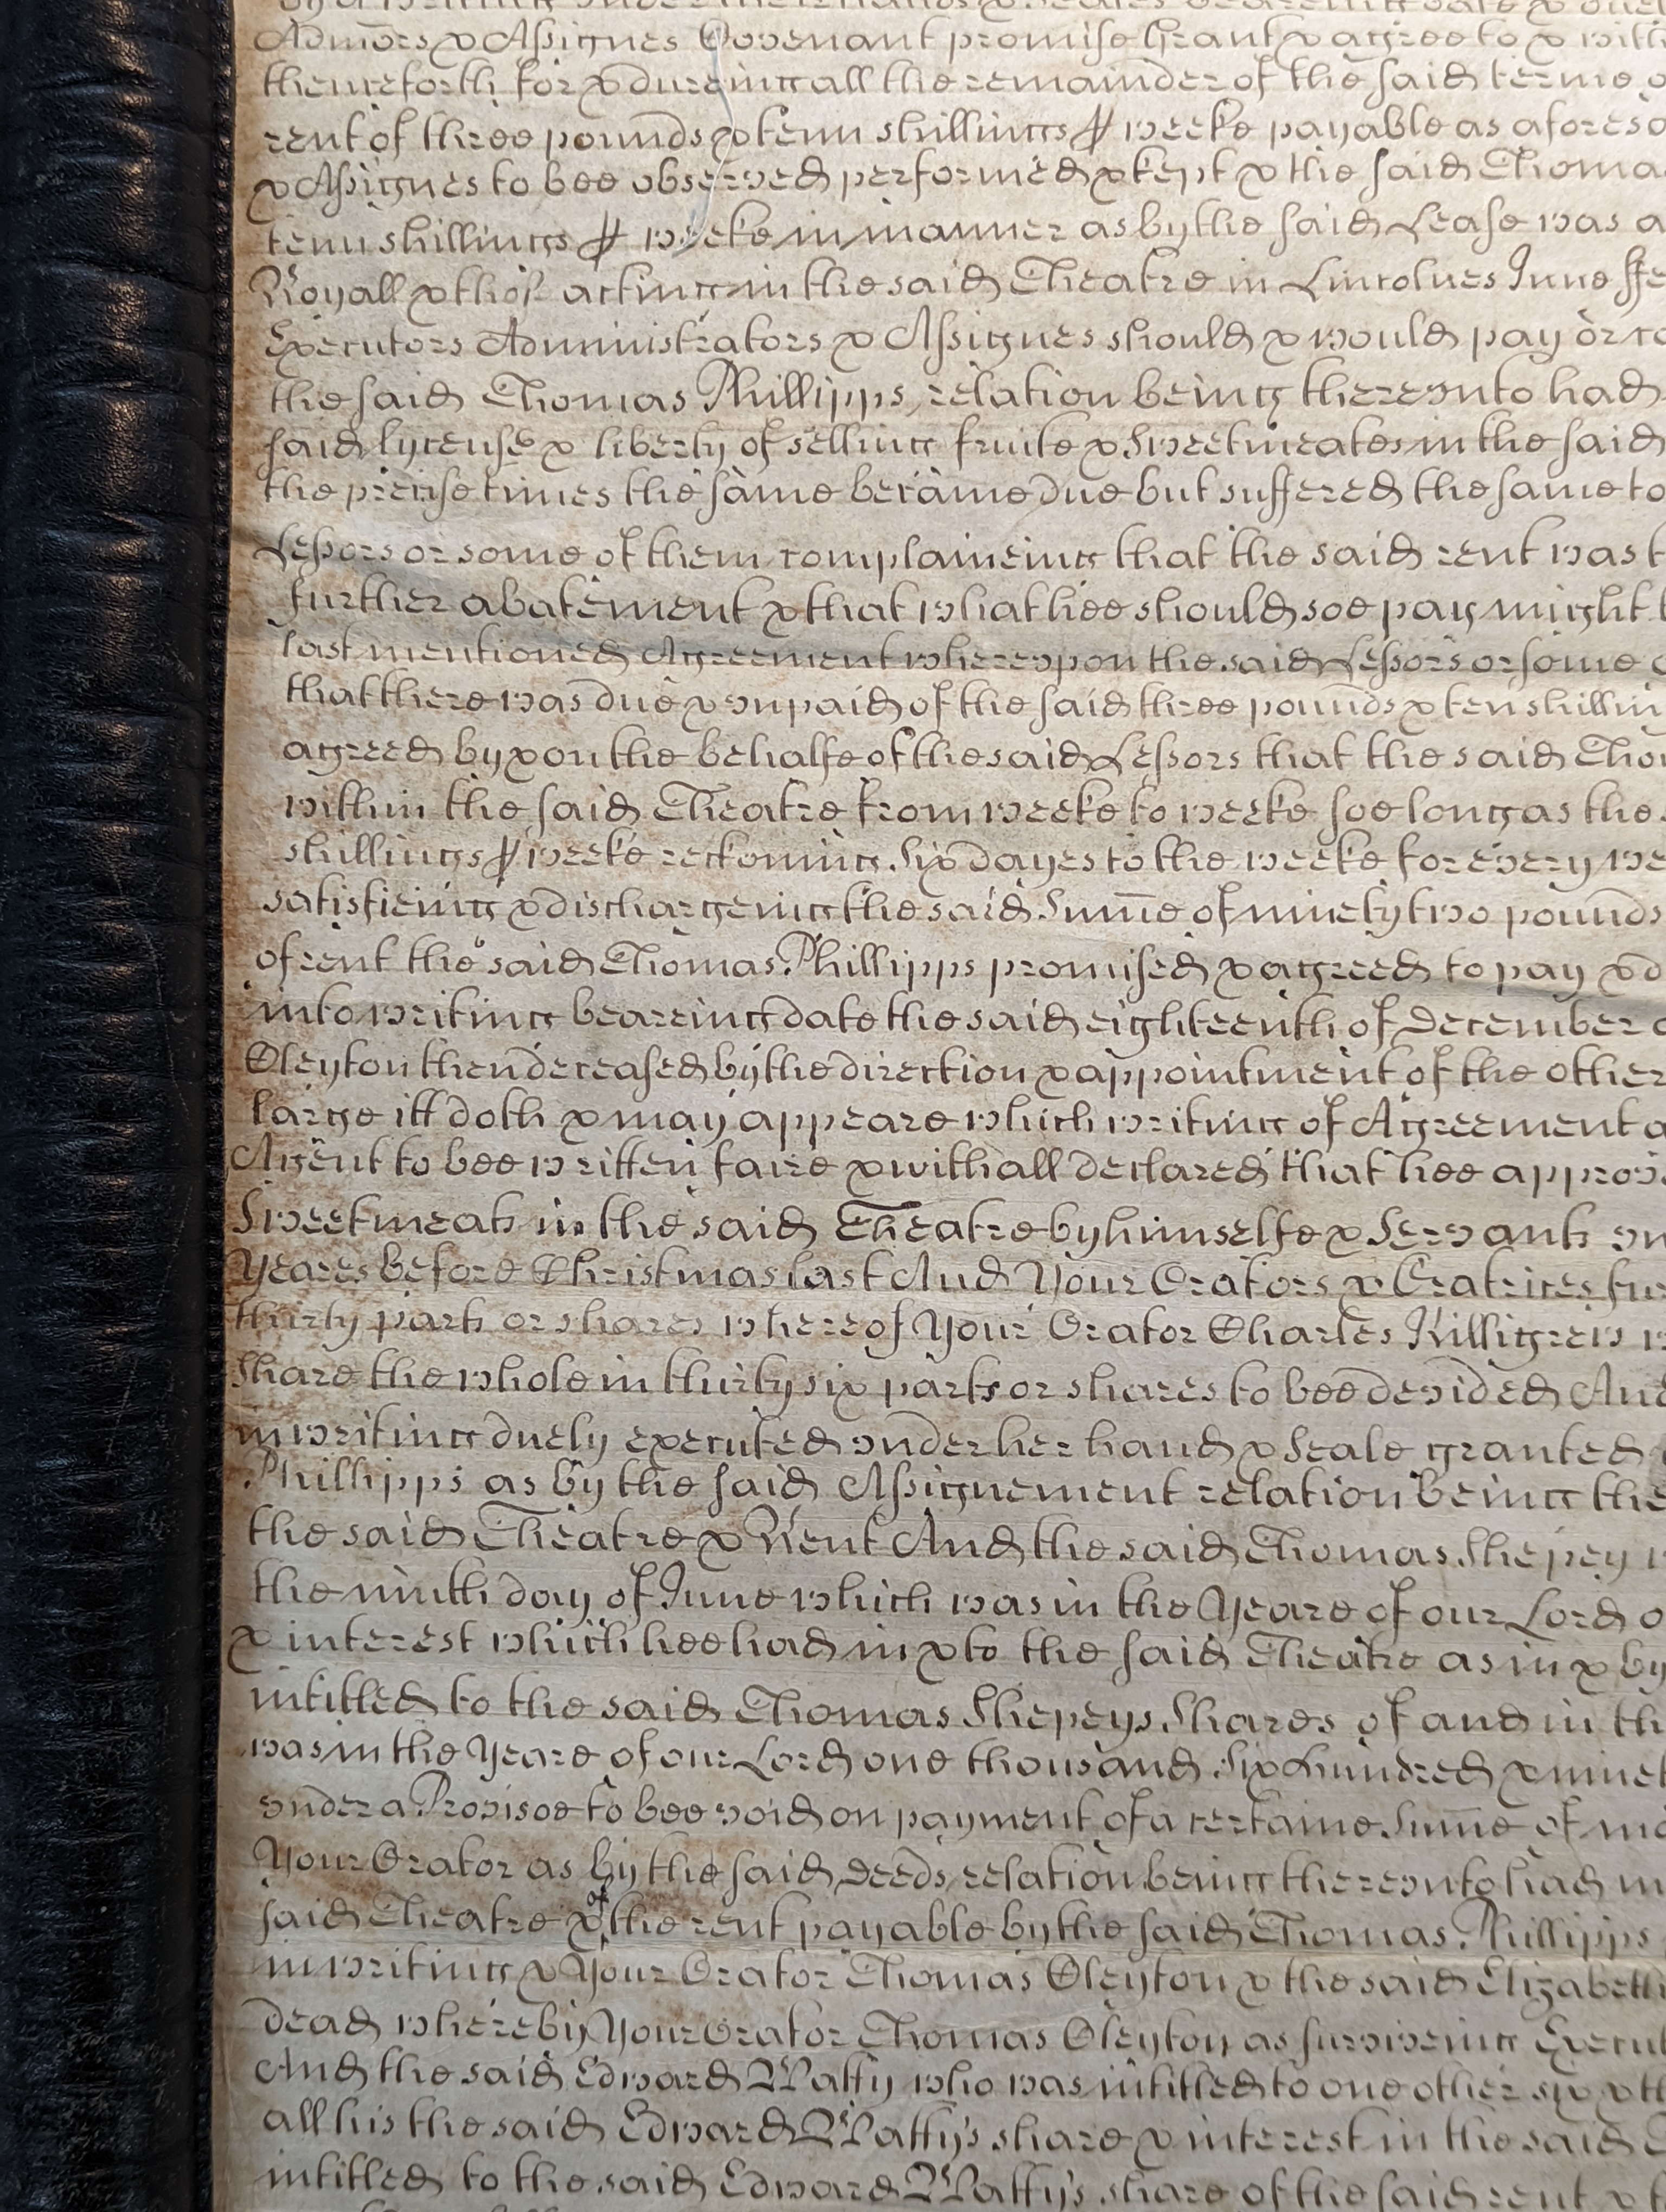 Admors & Assignes Covenant promise Grant & agree to & with
thenceforth for & dureing all the remainder of the said terme o
rent of three pounds & tenn shillings ꝑ weeke payable as aforesa
& Assignes to bee observed performed & kept & the said Thoma
tenn shillings ꝑ weeke in manner as by the said Lease was a
Royall & those acting in the said Theatre in Lincolnes Inne ffe
Executors Administrators & Assignes should & would pay or ca
the said Thomas Phillipps, relation being thereunto had
said lycense & liberty of selling fruite & Sweetmeates in the said
the precise times the same became due but suffered the same to
Lessors or some of them complaineing that the said rent was t
further abatement & that what hee should soe pay might b
last mentioned Agreement whereupon the said Lessors or some o
that there was due & unpaid of the said three pounds & ten shillin
agreed by & on the behalfe of the said Lessors that the said Tho
within the said Theatre from weeke to weeke soe long as the
shillings ꝑ weeke reckoning Six dayes to the weeke for every we
satisfieing & dischargeing the said Sum̄e of ninety two pounds
of rent the said Thomas Phillipps promised & agreed to pay & d
into writing beareing date the said eighteenth of December a
Cleyton then deceased by the direction & appointment of the other
large itt doth & may appeare which writing of Agreement a
Agent to bee written faire & withall declared that hee approv
Sweetmeats in the said Theatre by himselfe & Servants un
Yeares before Christmas last And Your Orators & Oratrices fur
thirty parts or shares whereof Your Orator Charles Killigrew w
Share the whole in thirty six parts or shares to bee devided And
in writing duely executed under her hand & Seale granted
Phillipps as by the said Assignement relation being the
the said Theatre & Rent And the said Thomas Shepey w
the ninth day of June which was in the Yeare of our Lord o
& interest which hee had in & to the said Theatre as in & by
intitled to the said Thomas Shepeys Shares of and in th
was in the Yeare of our Lord one thousand Six hundred & ninet
under a Provisoe to bee void on payment of a certaine Sum̄e of mo
Your Orator as by the said Deeds relation being thereunto had m
said Theatre & of the rent payable by the said Thomas Phillipps
in writing & Your Orator Thomas Cleyton & the said Elizabeth
dead whereby Your Orator Thomas Cleyton as surviveing Execut
And the said Edward Watty who was intitled to one other six & th
all his the said Edward Watty's share & interest in the said
intitled to the said Edward Watty's share of the said rent &